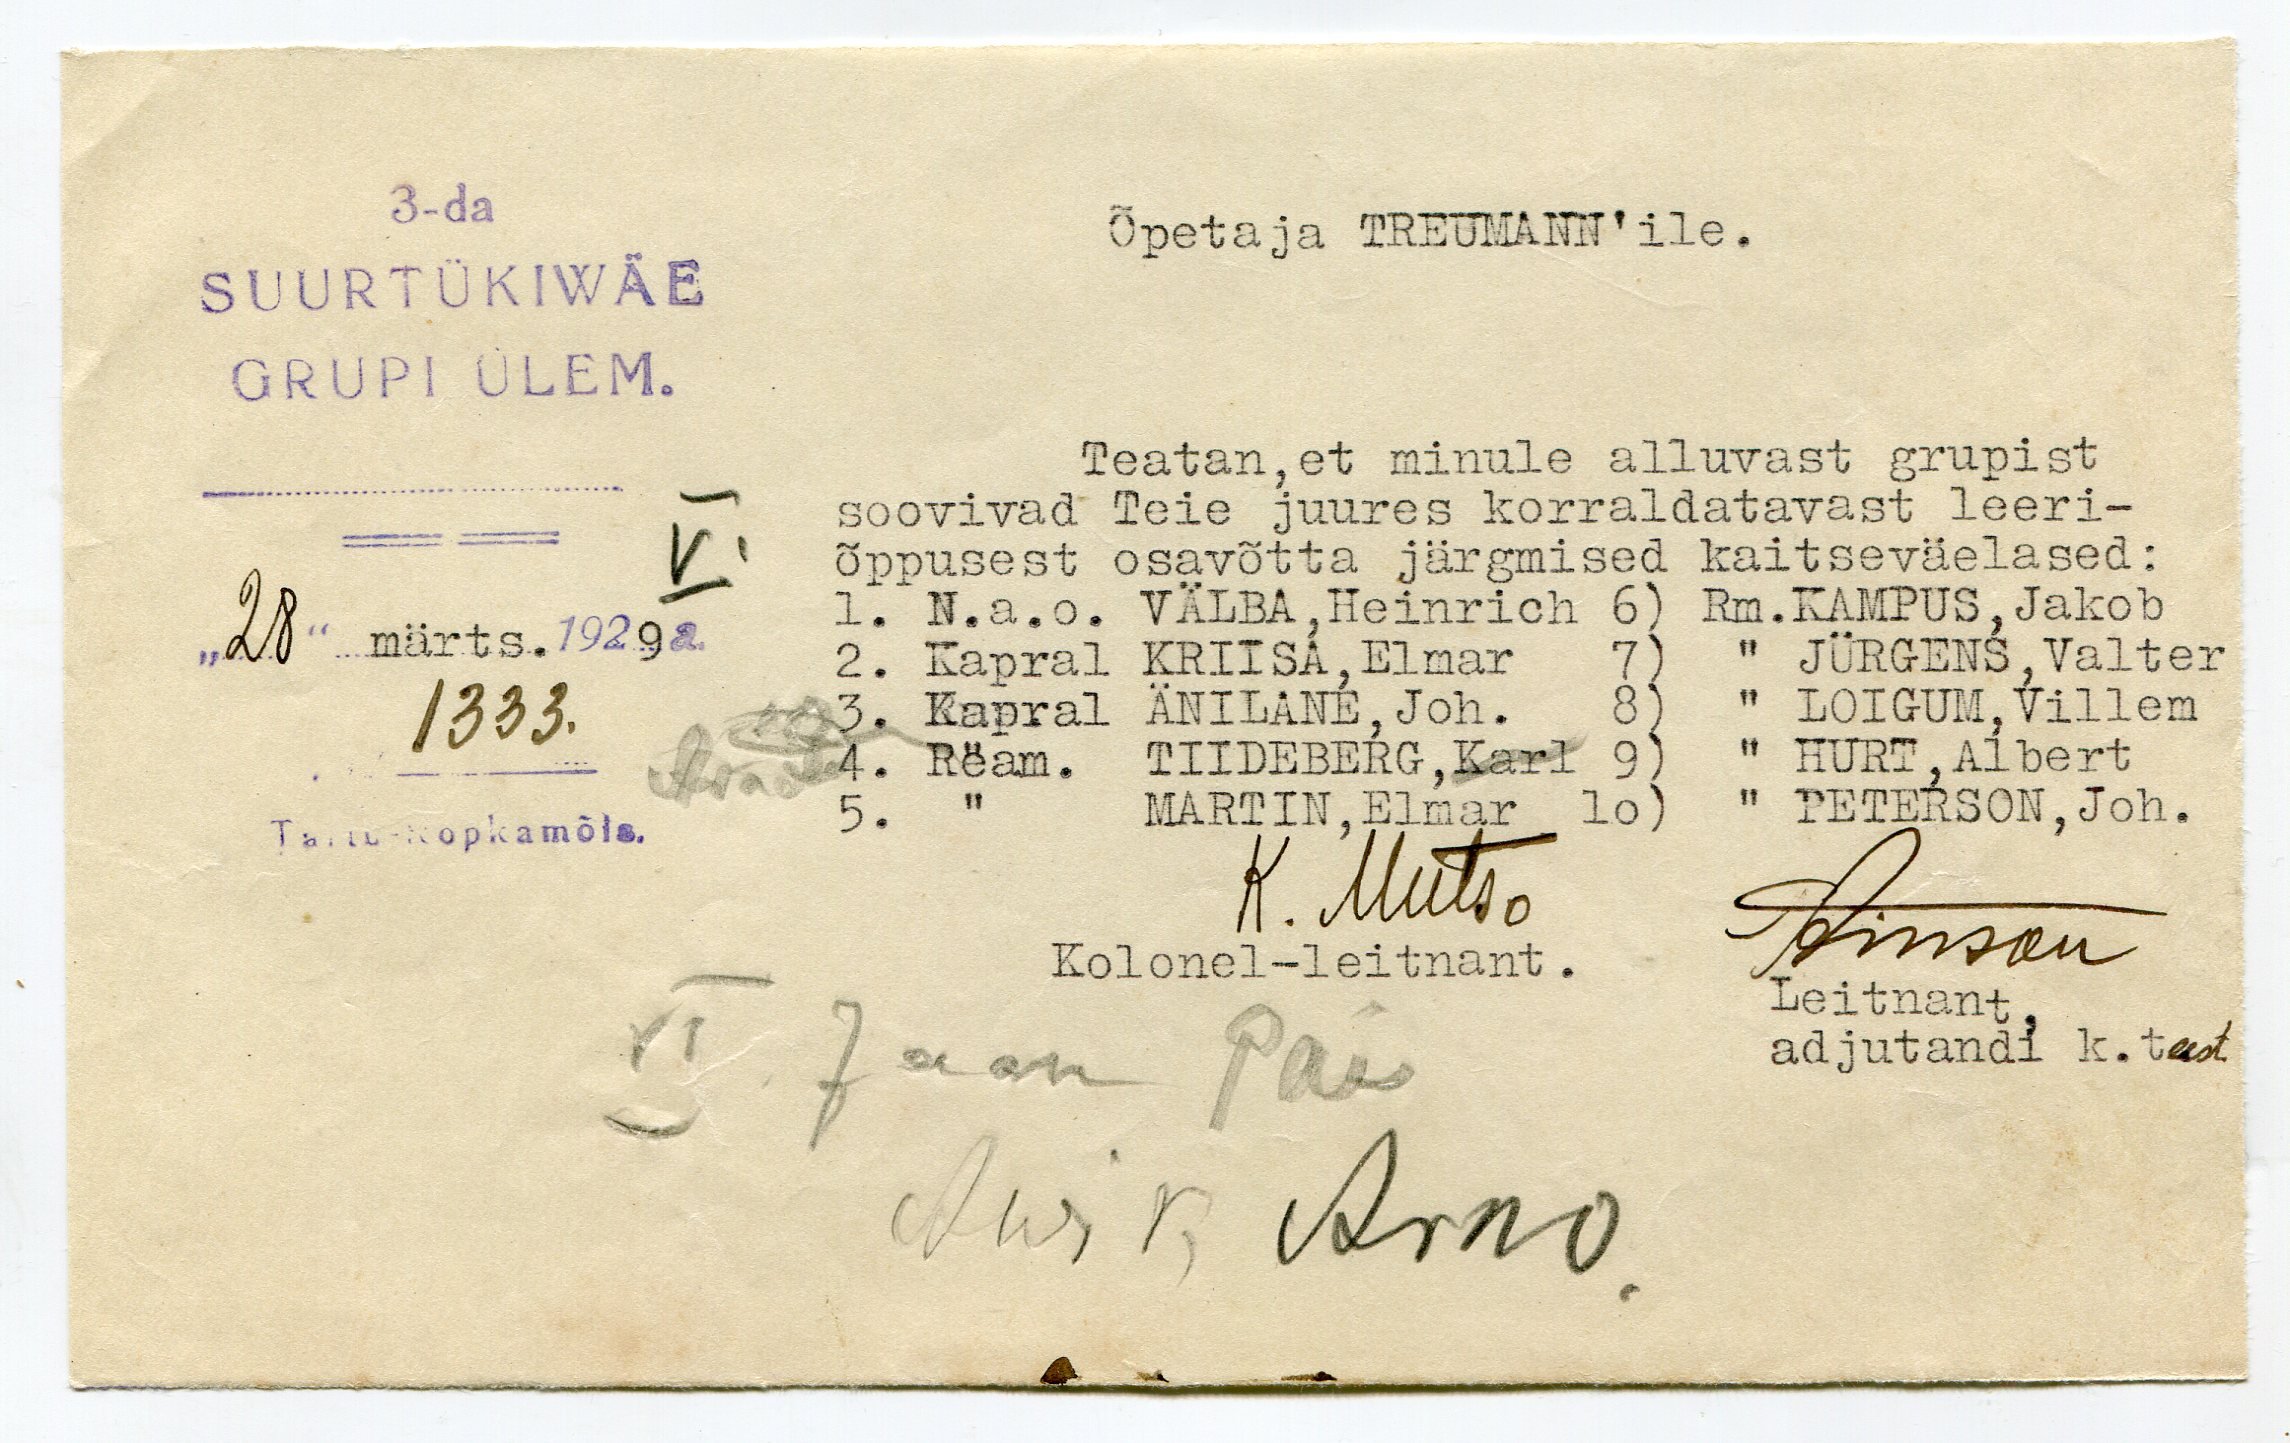 3-da
SUURTÜKIWÄE
GRUPI ÜLEM.
„28“ märts. 1929 a.
1333.
Tartu-Kopkamõis.
Õpetaja TREUMANN'ile.
Teatan, et minule alluvast grupist
soovivad Teie juures korraldatavast leeri-
õppusest osavõtta järgmised kaitseväelased:
1. N.a.o. VÄLBA, Heinrich 6) Rm. KAMPUS, Jakob
2. Kapral KRIISA, Elmar 7) " JÜRGENS, Valter
3. Kapral ÄNILANE, Joh. 8) " LOIGUM, Villem
4. Ream. TIIDEBERG, Karl 9) " HURT, Albert
5. " MARTIN, Elmar 1o) " PETERSON, Joh.
VI
K. Mutso
Kolonel-leitnant.
Leitnant,
adjutandi k.t eest
VI Jaan
Arno.